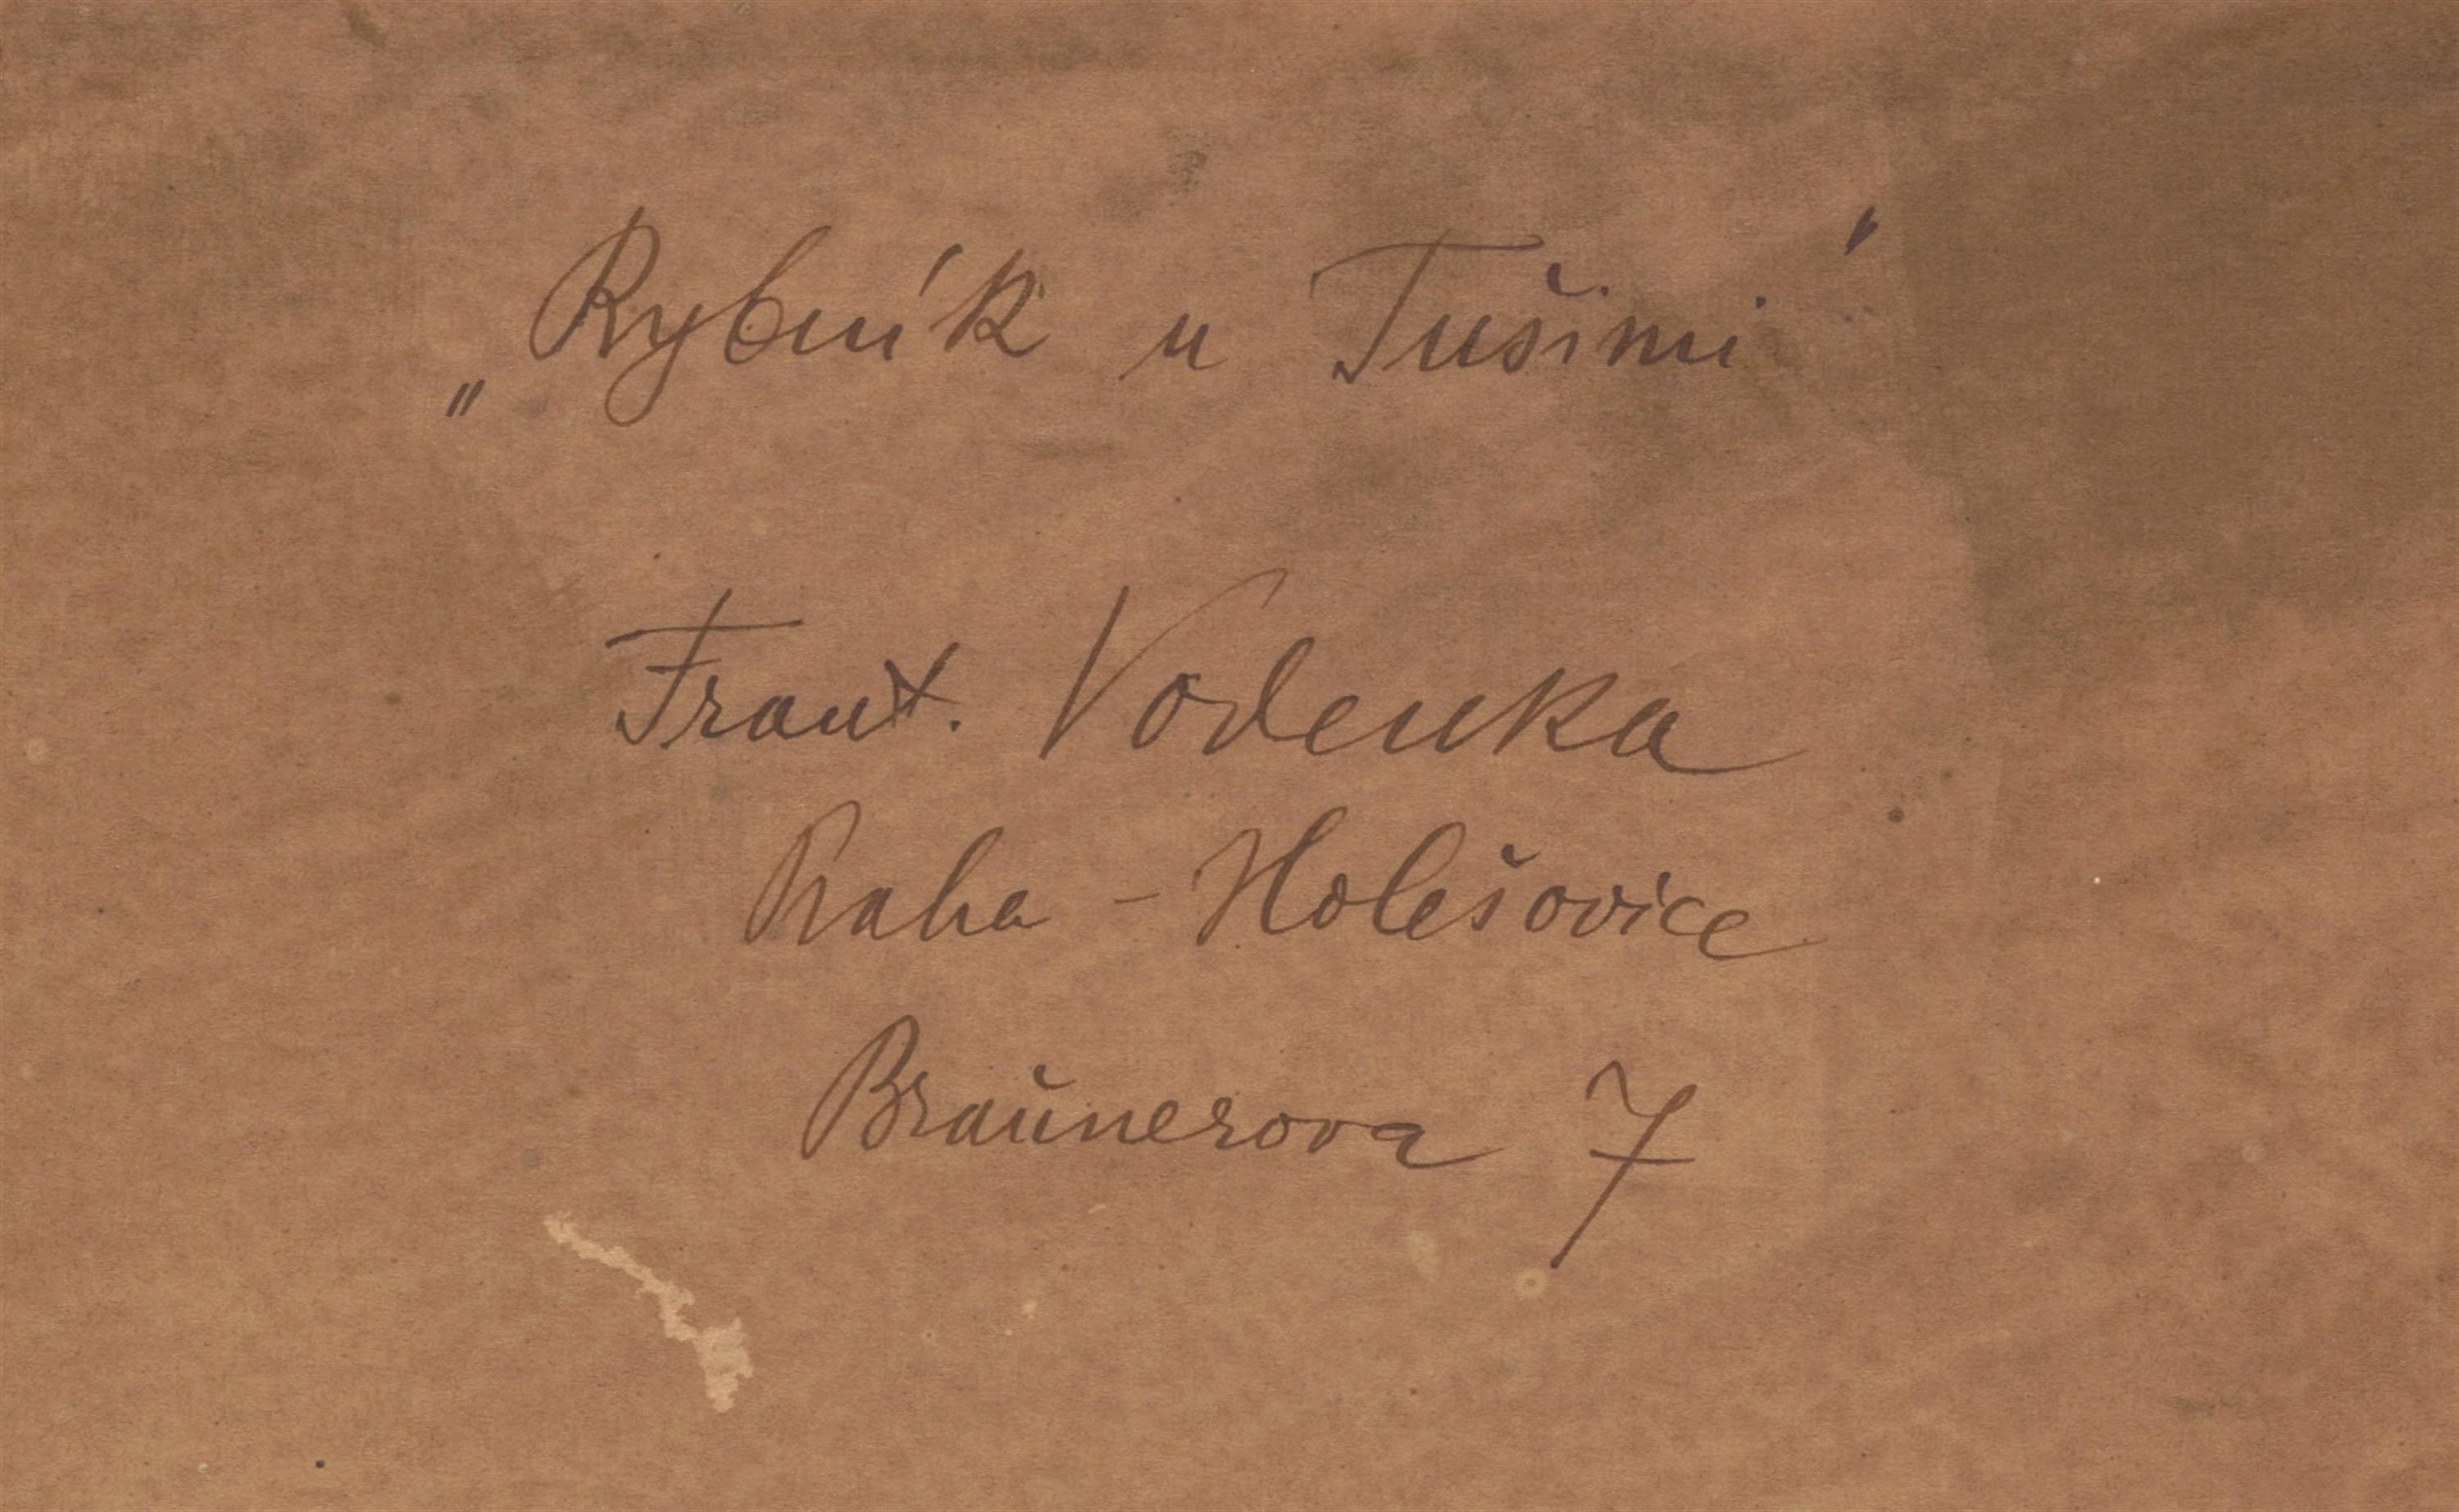 „Rybník u Tušimi“
Frant. Vodenka
Praha - Holešovice
Braunerova 7